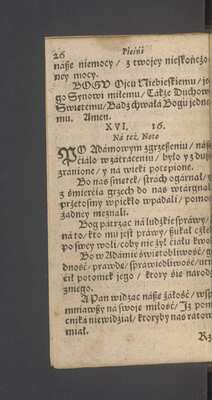 26 Pieśni
náße niemocy / z twojey nieskończo-
ney mocy.
BOGU Ojcu Niebieskiemu / je-
go Synowi miłemu / Tákże Duchow
Swietemu / Bądź chwałá Bogu jedne
mu. Amen.
XVI. 16.
Ná też Notę
PO Adámowym zgrzeßeniu / náße
ćiáło w zátráceniu / było y z duß
zránione / y ná wieki potępione.
Bo nas smętek / strách ogárnął / y
z śmierćią grzech do nas wtárgnął
przetośmy w piekło wpádáli / pomo
żadney mieználi.
Bog pátrząc ná ludzkie spráwy /
ná to / kto mu jest práwy / ßukał człe
po swey woli / coby nie żył ćiáłu kwoli
Bo w Adámie świetobliwość / g
dność / práwdę / spráwiedliwość / utr
ćił potomek jego / ktory się národ
zmego.
A Pan widząc náße żáłość / wsp
mniawßy ná swoje miłość / Iż pom
cniká niewidział / ktoryby nas rátow
miał.